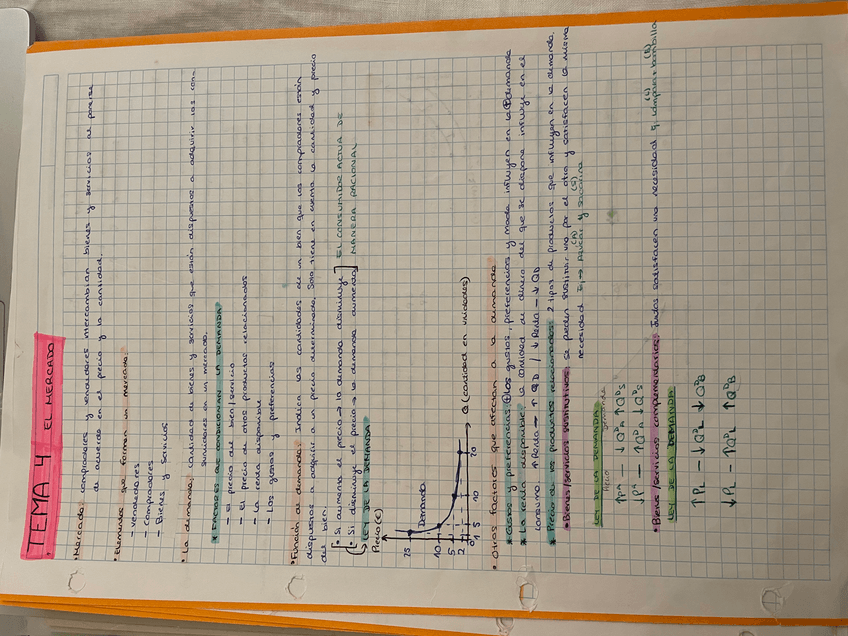 TEMA 4 EL MERCADO
• Mercado: compradores y vendedores intercambian bienes y servicios al ponerse
de acuerdo en el precio y la cantidad.
• Elementos que forman un mercado:
- vendedores
- Compradores
- Bienes y Servicios
• La demanda: cantidad de bienes y servicios que están dispuestos a adquirir los con-
sumidores en un mercado.
* FACTORES QUE CONDICIONAN LA DEMANDA:
- El precio del bien/servicio
- El precio de otros productos relacionados
- La renta disponible
- Los gustos y preferencias
• Función de demanda: Indica las cantidades de un bien que los compradores están
dispuestos a adquirir a un precio determinado. Solo tiene en cuenta la cantidad y precio
del bien.
• Si aumenta el precio → la demanda disminuye ] EL CONSUMIDOR ACTUA DE
• Si disminuye el precio → la demanda aumenta MANERA RACIONAL
→ LEY DE LA DEMANDA
Precio (€)
25
Demanda
10
5
2
0 1 5 10 20 Q (cantidad en unidades)
• Otros factores que afectan a la demanda
* Gustos y preferencias: los gustos, preferencias y moda influyen en la demanda
* La renta disponible: la cantidad de dinero del que se dispone influye en el
consumo. ↑ Renta → ↑ QD / ↓ Renta - ↓ QD
* Precio de los productos relacionados: 2 tipos de productos que influyen en la demanda.
• Bienes/servicios sustitutivos: se pueden sustituir uno por el otro y satisfacen la misma
necesidad Ej → Azúcar (A) y sacarina (S)
LEY DE LA DEMANDA
Precio Demanda
↑PA — ↓QDA ↑QDS
↓PA — ↑QDA ↓QDS
• Bienes/servicios complementarios: Juntos satisfacen una necesidad Ej lámpara (L) + bombilla (B)
LEY DE LA DEMANDA
↑PL - ↓QDL ↓QDB
↓PL - ↑QDL ↑QDB